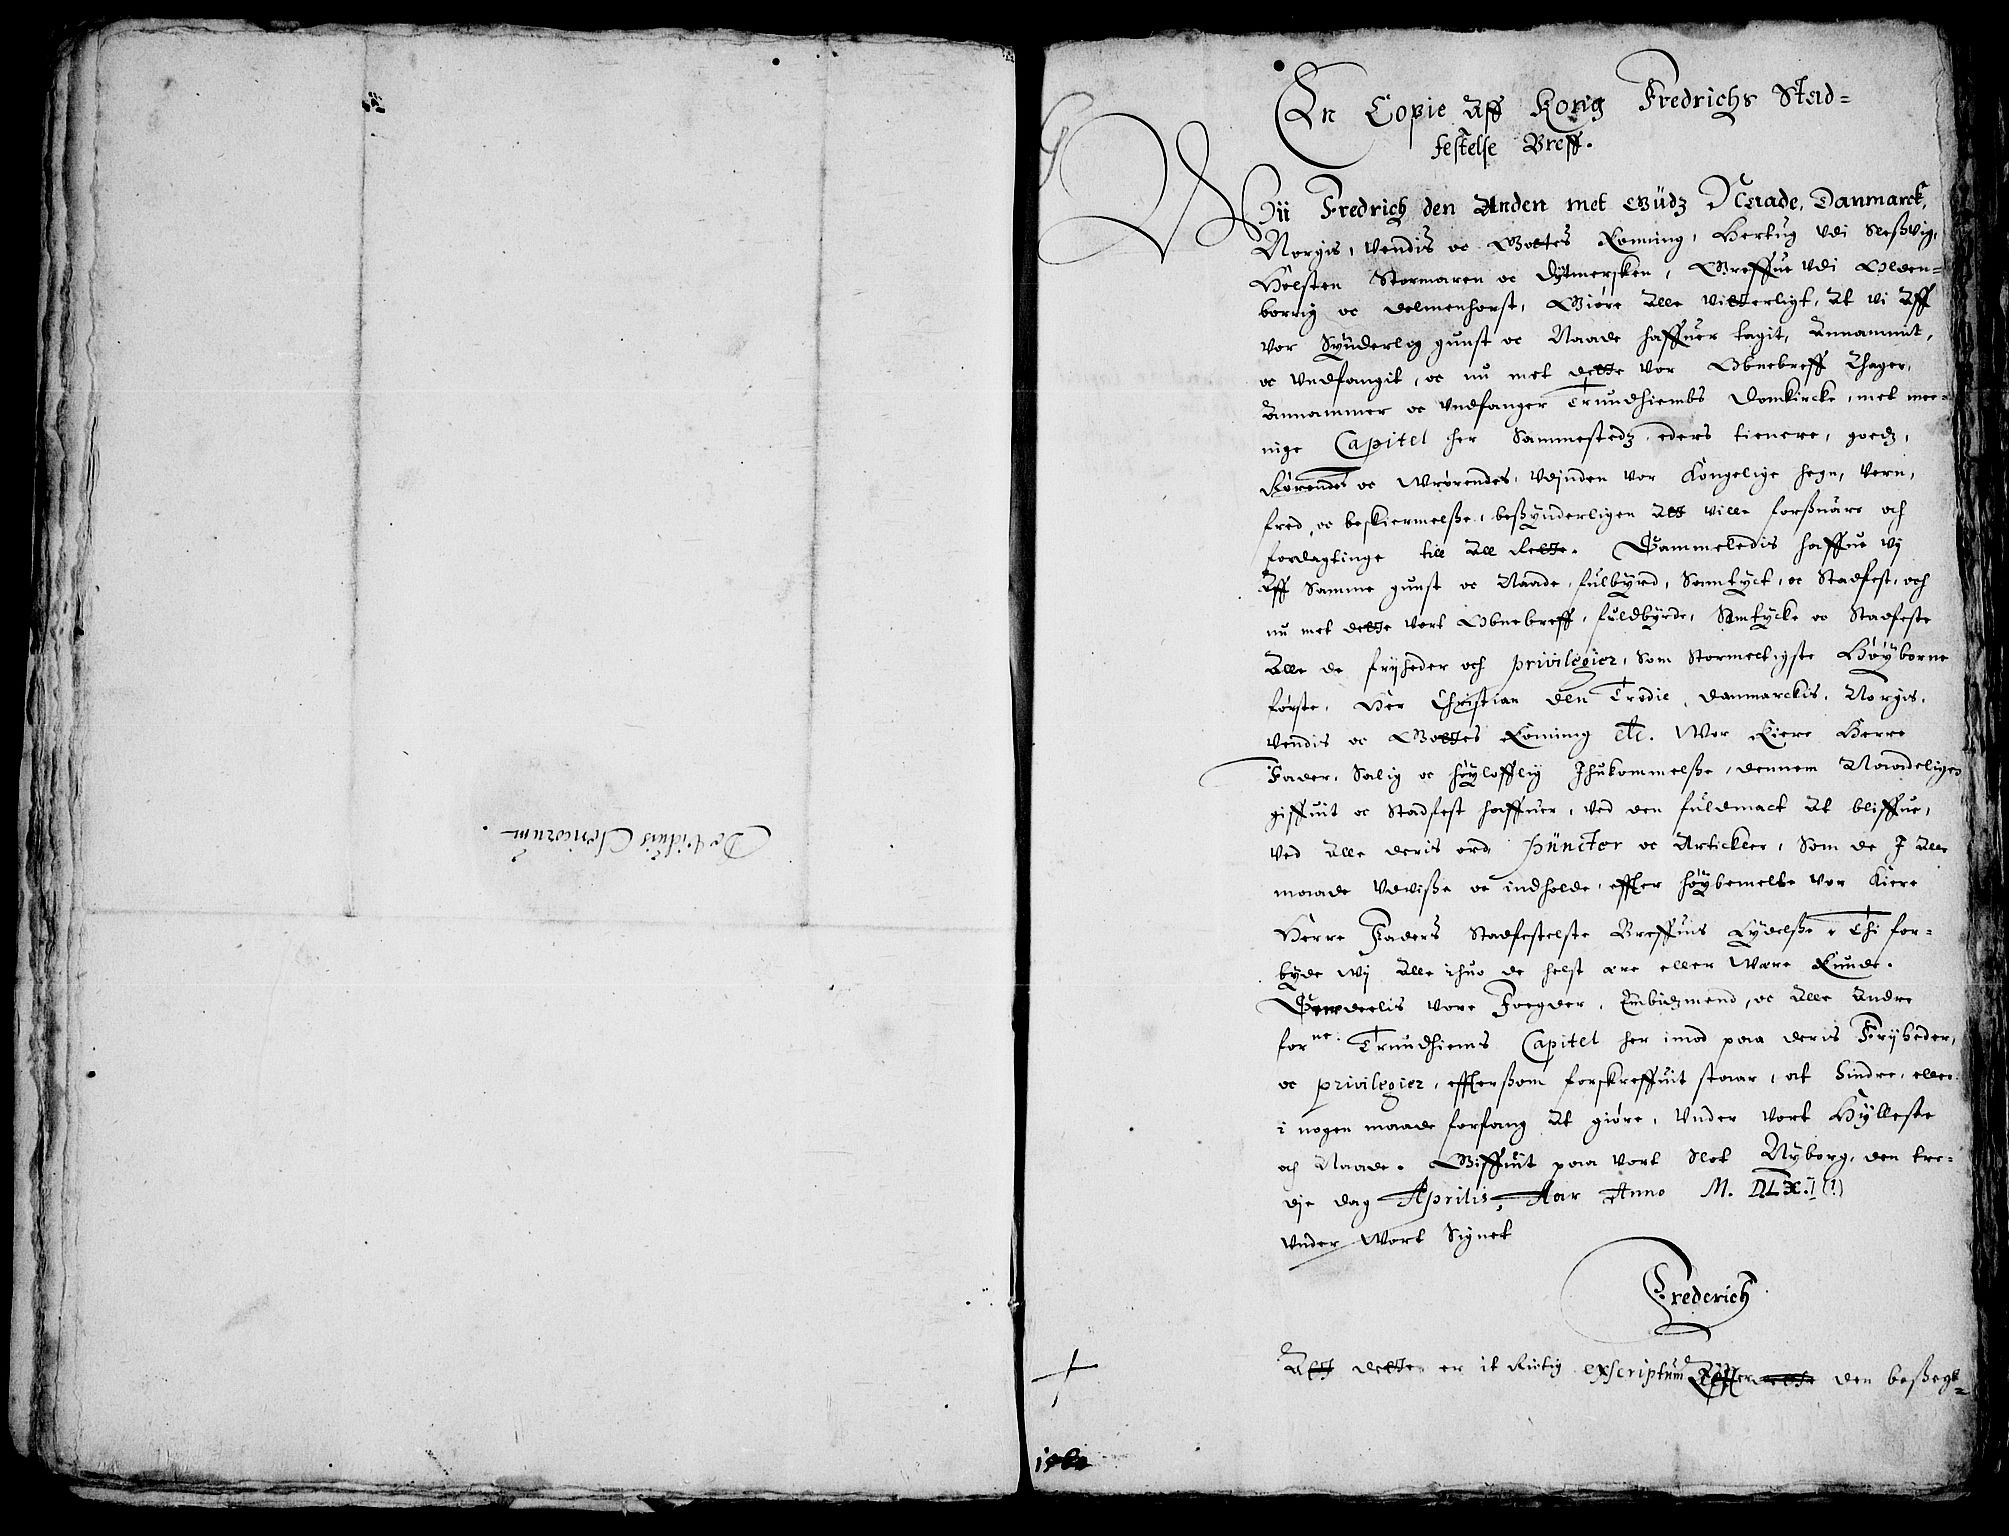 De Viduis Clericorum.
En Copie Aff Konig Fredrichs Stad=
festelse Breff.
Wii Fredrich den Anden met Gudz Naade, Danmarck,
Norgis, Vendis oc Gottes Konning, Hertug udi Sleßvig,
Holsten Stormaren oc Dytmersken, Greffue udi Olden=
borrig oc Delmenhorst, Giøre Alle Vitterligt, At vi Aff
vor Synderlog gunst oc Naade haffuer tagit, Annammit,
oc Undfangit, oc nu met dette vor Obnebreff Thager,
Annammer oc Undfanger Trundhiembs Domkircke, met mee=
nige Capitel her Sammestedz eders tienere, goedz,
Rørendes oc Wrørendes, Udjnden vor Kongelige hegn, Vern,
fred, oc beskiermelße, beßynderligen Alt ville forßuare och
fordagtinge till All Rette. Sammeledis haffue vy
Aff Samme gunst oc Naade, fulbyrd, Samtyct, oc Stadfest, och
nu met dette vort Obnebreff, fuldbyrde, Samtycke oc Stadfeste
Alle de fryheder och privilegier, Som Stormectigste Høyborne
første, Her Christian den Tredie, Danmarckis, Norgis,
Vendis oc Gottes Konning etc. Wor Kiere Herre
Fader, Salig oc høyloffllig Jhukommelße, dennem Naadeligen
giffuit oc Stadfest haffuer, ved den fuldmact At bliffue,
Ved Alle deris ord, puncter oc Artickler, Som de J Alle
maade Udviße oc indholde, effter høybemelte vor Kiere
Herre Faders Stadfestelste Breffuis Lydelße, Thi for=
byde wy Alle ihuo de helst ære eller Wære Kunde.
Særdelis vore Foegder, Embidzmend, oc Alle Andre
forne. Trundhiems Capitel her imod paa deris Fryheder,
oc privilegier, effterßom forskreffuit staar, at hindre, eller
i nogen maade forfang At giøre, Under vort Hylleste
och Naade. Giffuit paa vort Slot Nyborg, den tre=
dje dag Aprilis, Aar Anno M. DLX.
Under Wort Signet
Frederich
Alt dette er it Rictig exscriptum Effter den beßegl=